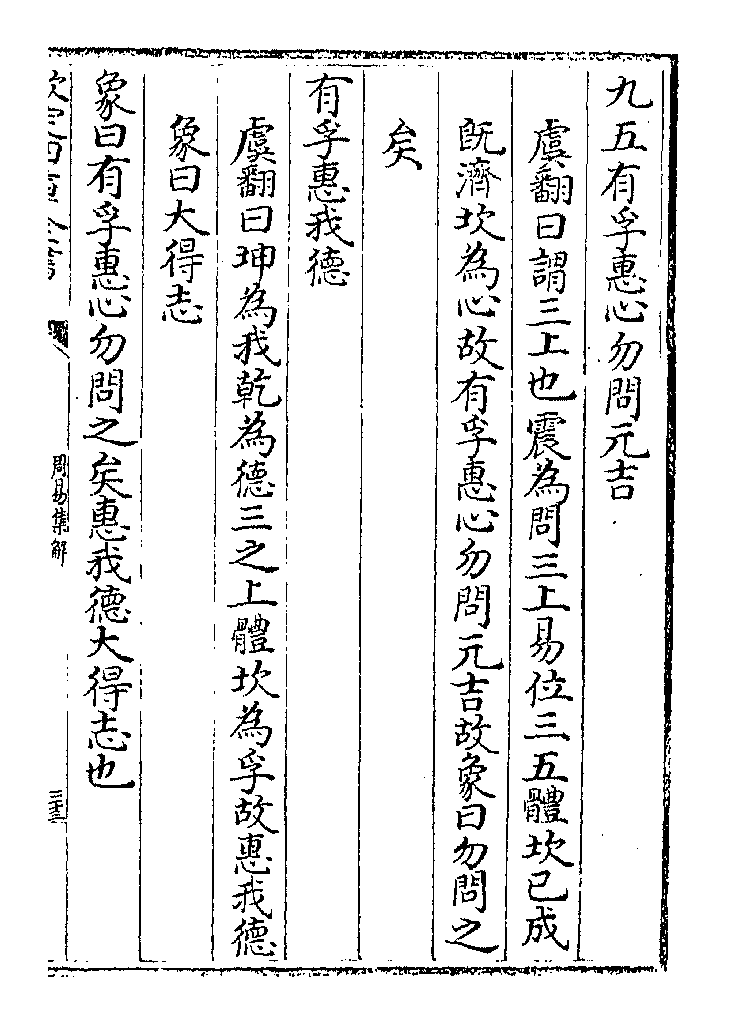 九五有孚惠心勿問元吉
虞翻曰謂三上也震為問三上易位三五體坎已成
既濟坎為心故有孚惠心勿問元吉故象曰勿問之
矣
有孚惠我德
虞翻曰坤為我乾為德三之上體坎為孚故惠我德
象曰大得志
象曰有孚惠心勿問之矣惠我德大得志也
周易集解